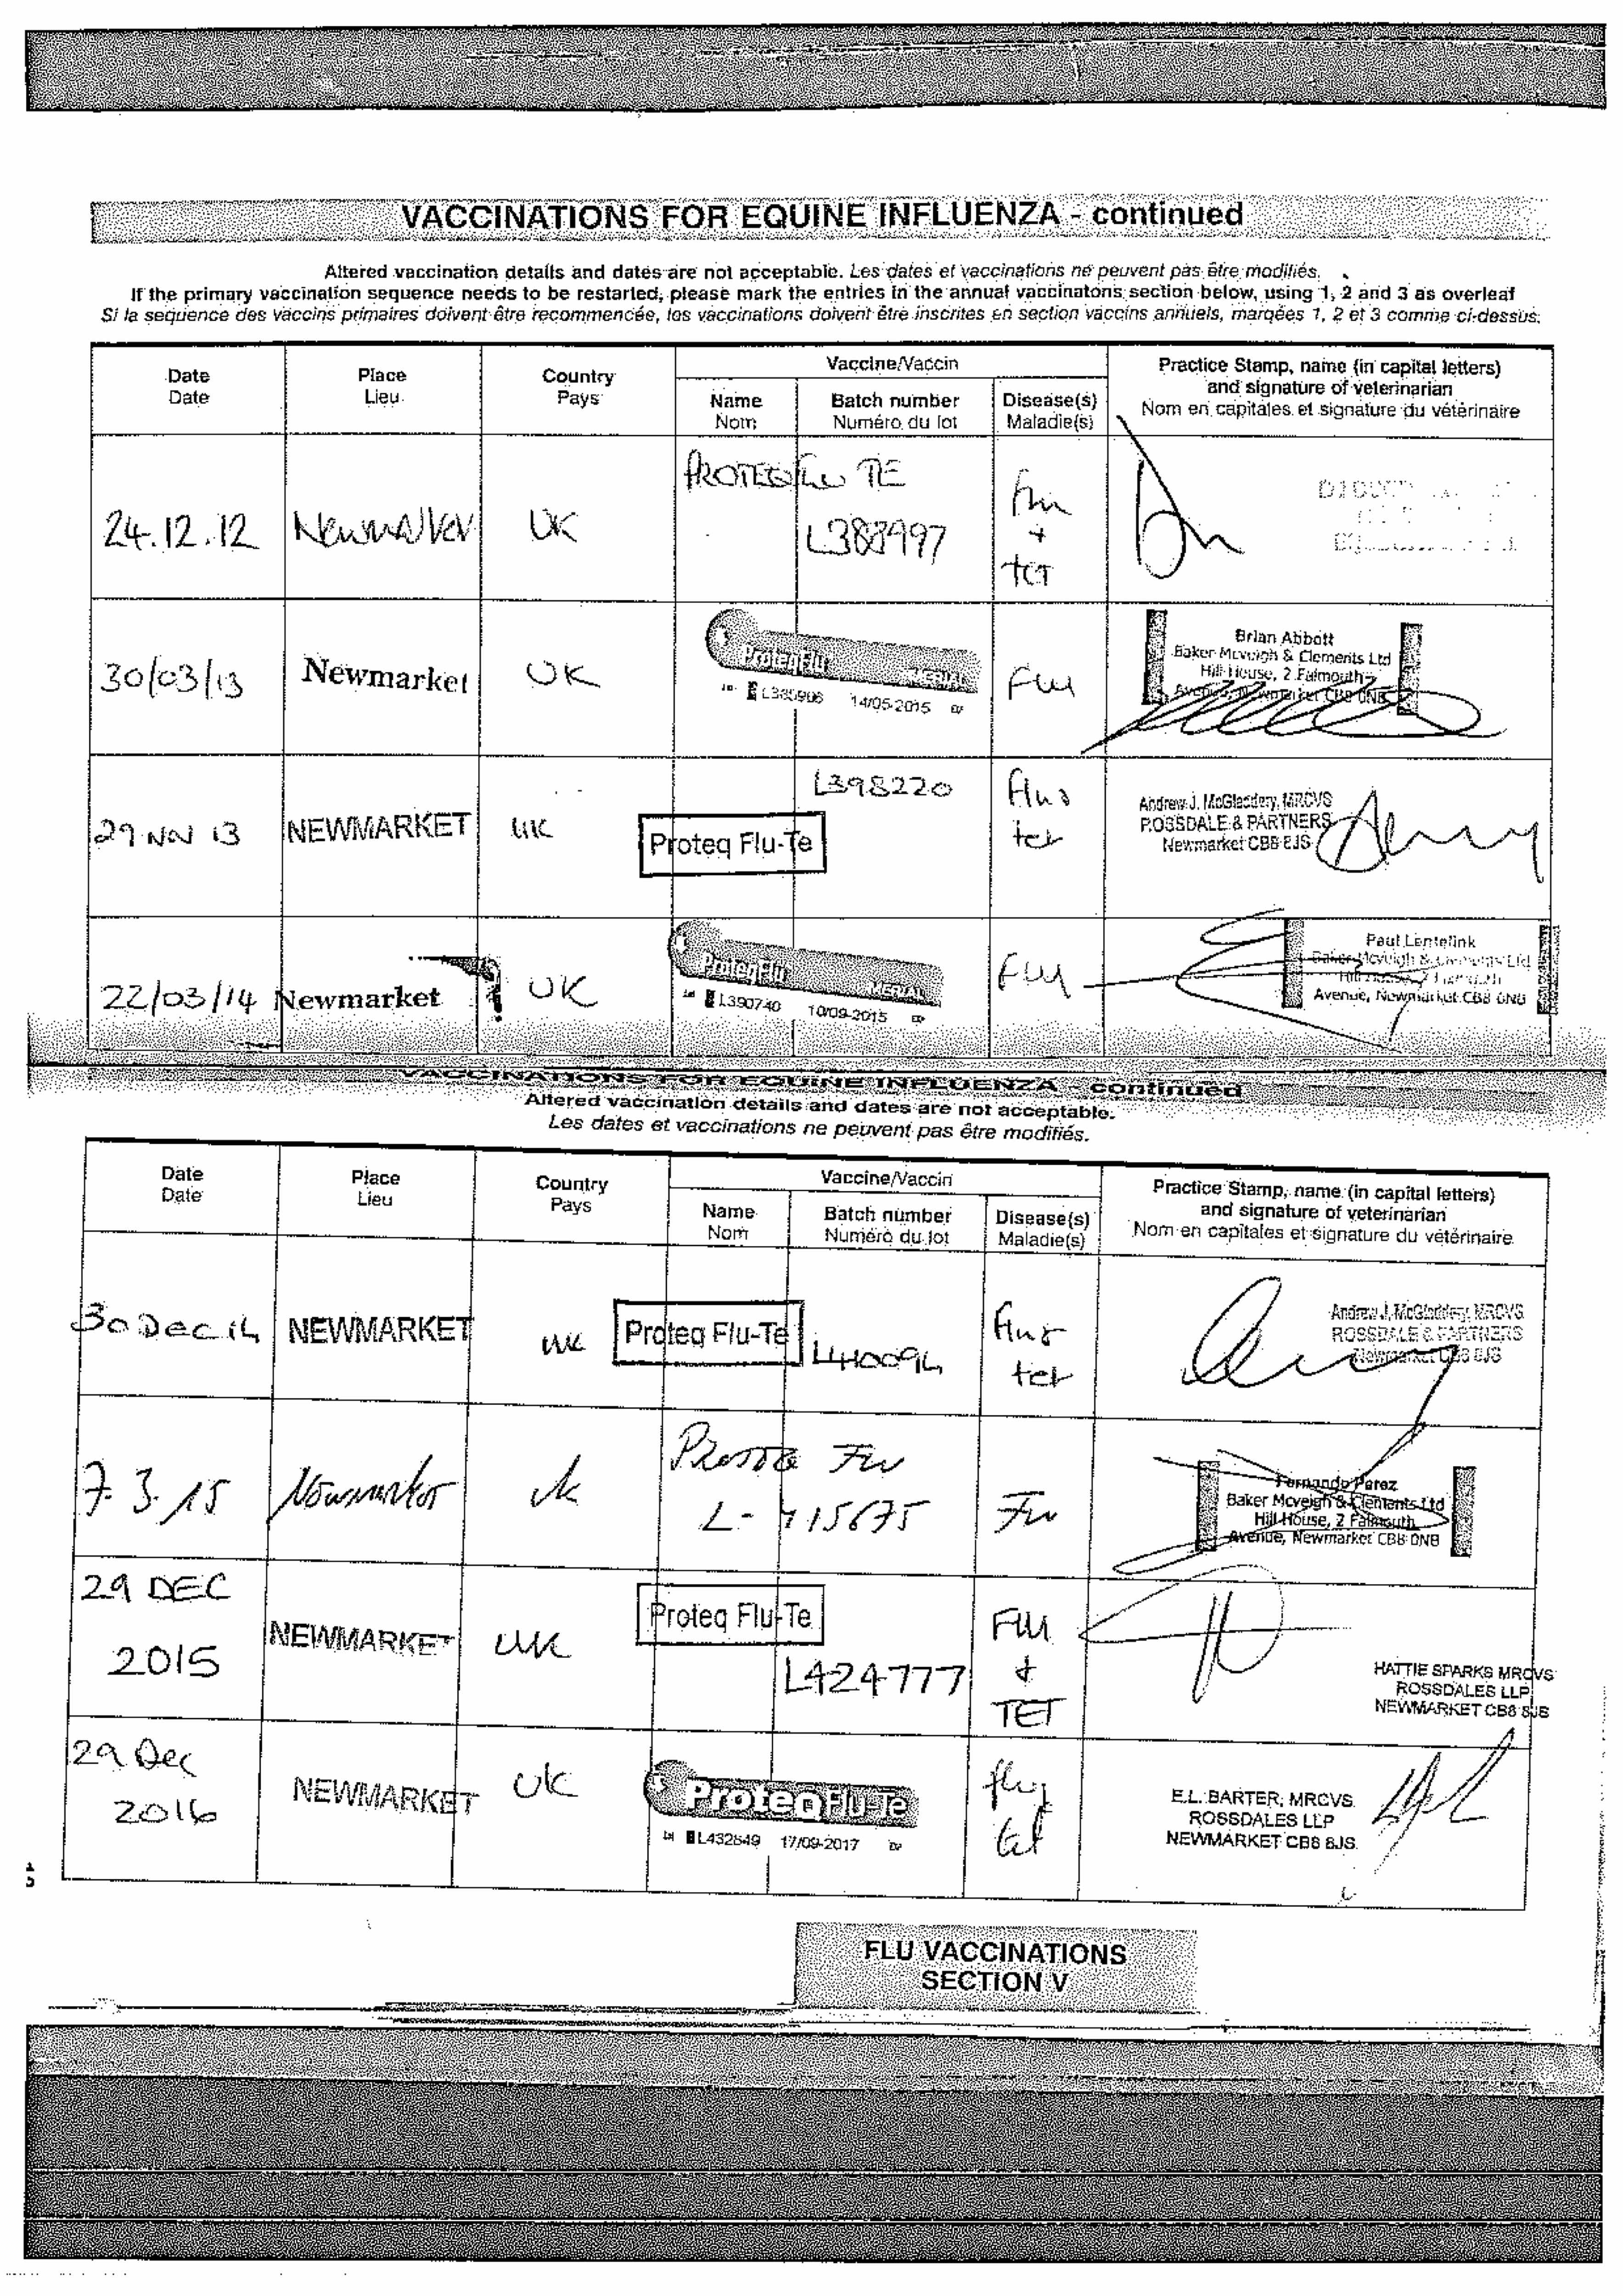 VACCINATIONS FOR EQUINE INFLUENZA - continued
Altered vaccination details and dates are not acceptable. Les dates et vaccinations ne peuvent pas être modifiés.
If the primary vaccination sequence needs to be restarted, please mark the entries in the annual vaccinatons section below, using 1, 2 and 3 as overleaf
Si la sequence des vaccins primaires doivent être recommencée, les vaccinations doivent être inscrites en section vaccins annuels, marqées 1, 2 et 3 comme ci-dessus.
Date Place Country Vaccine/Vaccin Practice Stamp, name (in capital letters)
Date Lieu Pays Name Batch number Disease(s) and signature of veterinarian
Nom Numéro du lot Maladie(s) Nom en capitales et signature du vétérinaire
PROTEQ FLU TE
24.12.12 Newmarket UK L388997 Flu
+
tet
30/03/13 Newmarket UK ProteqFlu MERIAL Flu
14/05-2015
Brian Abbott
Baker Mcveigh & Clements Ltd
Hill House, 2 Falmouth
Avenue, Newmarket CB8 0NB
29 NOV 13 NEWMARKET UK Proteq Flu-Te L398220 Flu &
tet
Andrew J. McGladdery, MRCVS
ROSSDALE & PARTNERS
Newmarket CB8 8JS
22/03/14 Newmarket UK ProteqFlu MERIAL Flu
L390740 10/09-2015
Paul Lentelink
Baker Mcveigh & Clements Ltd
Hill House, 2 Falmouth
Avenue, Newmarket CB8 0NB
VACCINATIONS FOR EQUINE INFLUENZA - continued
Altered vaccination details and dates are not acceptable.
Les dates et vaccinations ne peuvent pas être modifiés.
Date Place Country Vaccine/Vaccin Practice Stamp, name (in capital letters)
Date Lieu Pays Name Batch number Disease(s) and signature of veterinarian
Nom Numéro du lot Maladie(s) Nom en capitales et signature du vétérinaire
30 Dec 14 NEWMARKET UK Proteq Flu-Te L410094 Flu &
tet
Andrew J. McGladdery, MRCVS
ROSSDALE & PARTNERS
Newmarket CB8 8JS
7.3.15 Newmarket UK Proteq Flu
L-415675 Flu
Fernando Perez
Baker Mcveigh & Clements Ltd
Hill House, 2 Falmouth
Avenue, Newmarket CB8 0NB
29 DEC
2015 NEWMARKET UK Proteq Flu-Te L424777 Flu
+
TET
HATTIE SPARKS MRCVS
ROSSDALES LLP
NEWMARKET CB8 8JS
29 Dec
2016 NEWMARKET UK ProteqFlu-Te flu &
tet
L432849 17/09-2017
E.L. BARTER, MRCVS.
ROSSDALES LLP
NEWMARKET CB8 8JS.
FLU VACCINATIONS
SECTION V